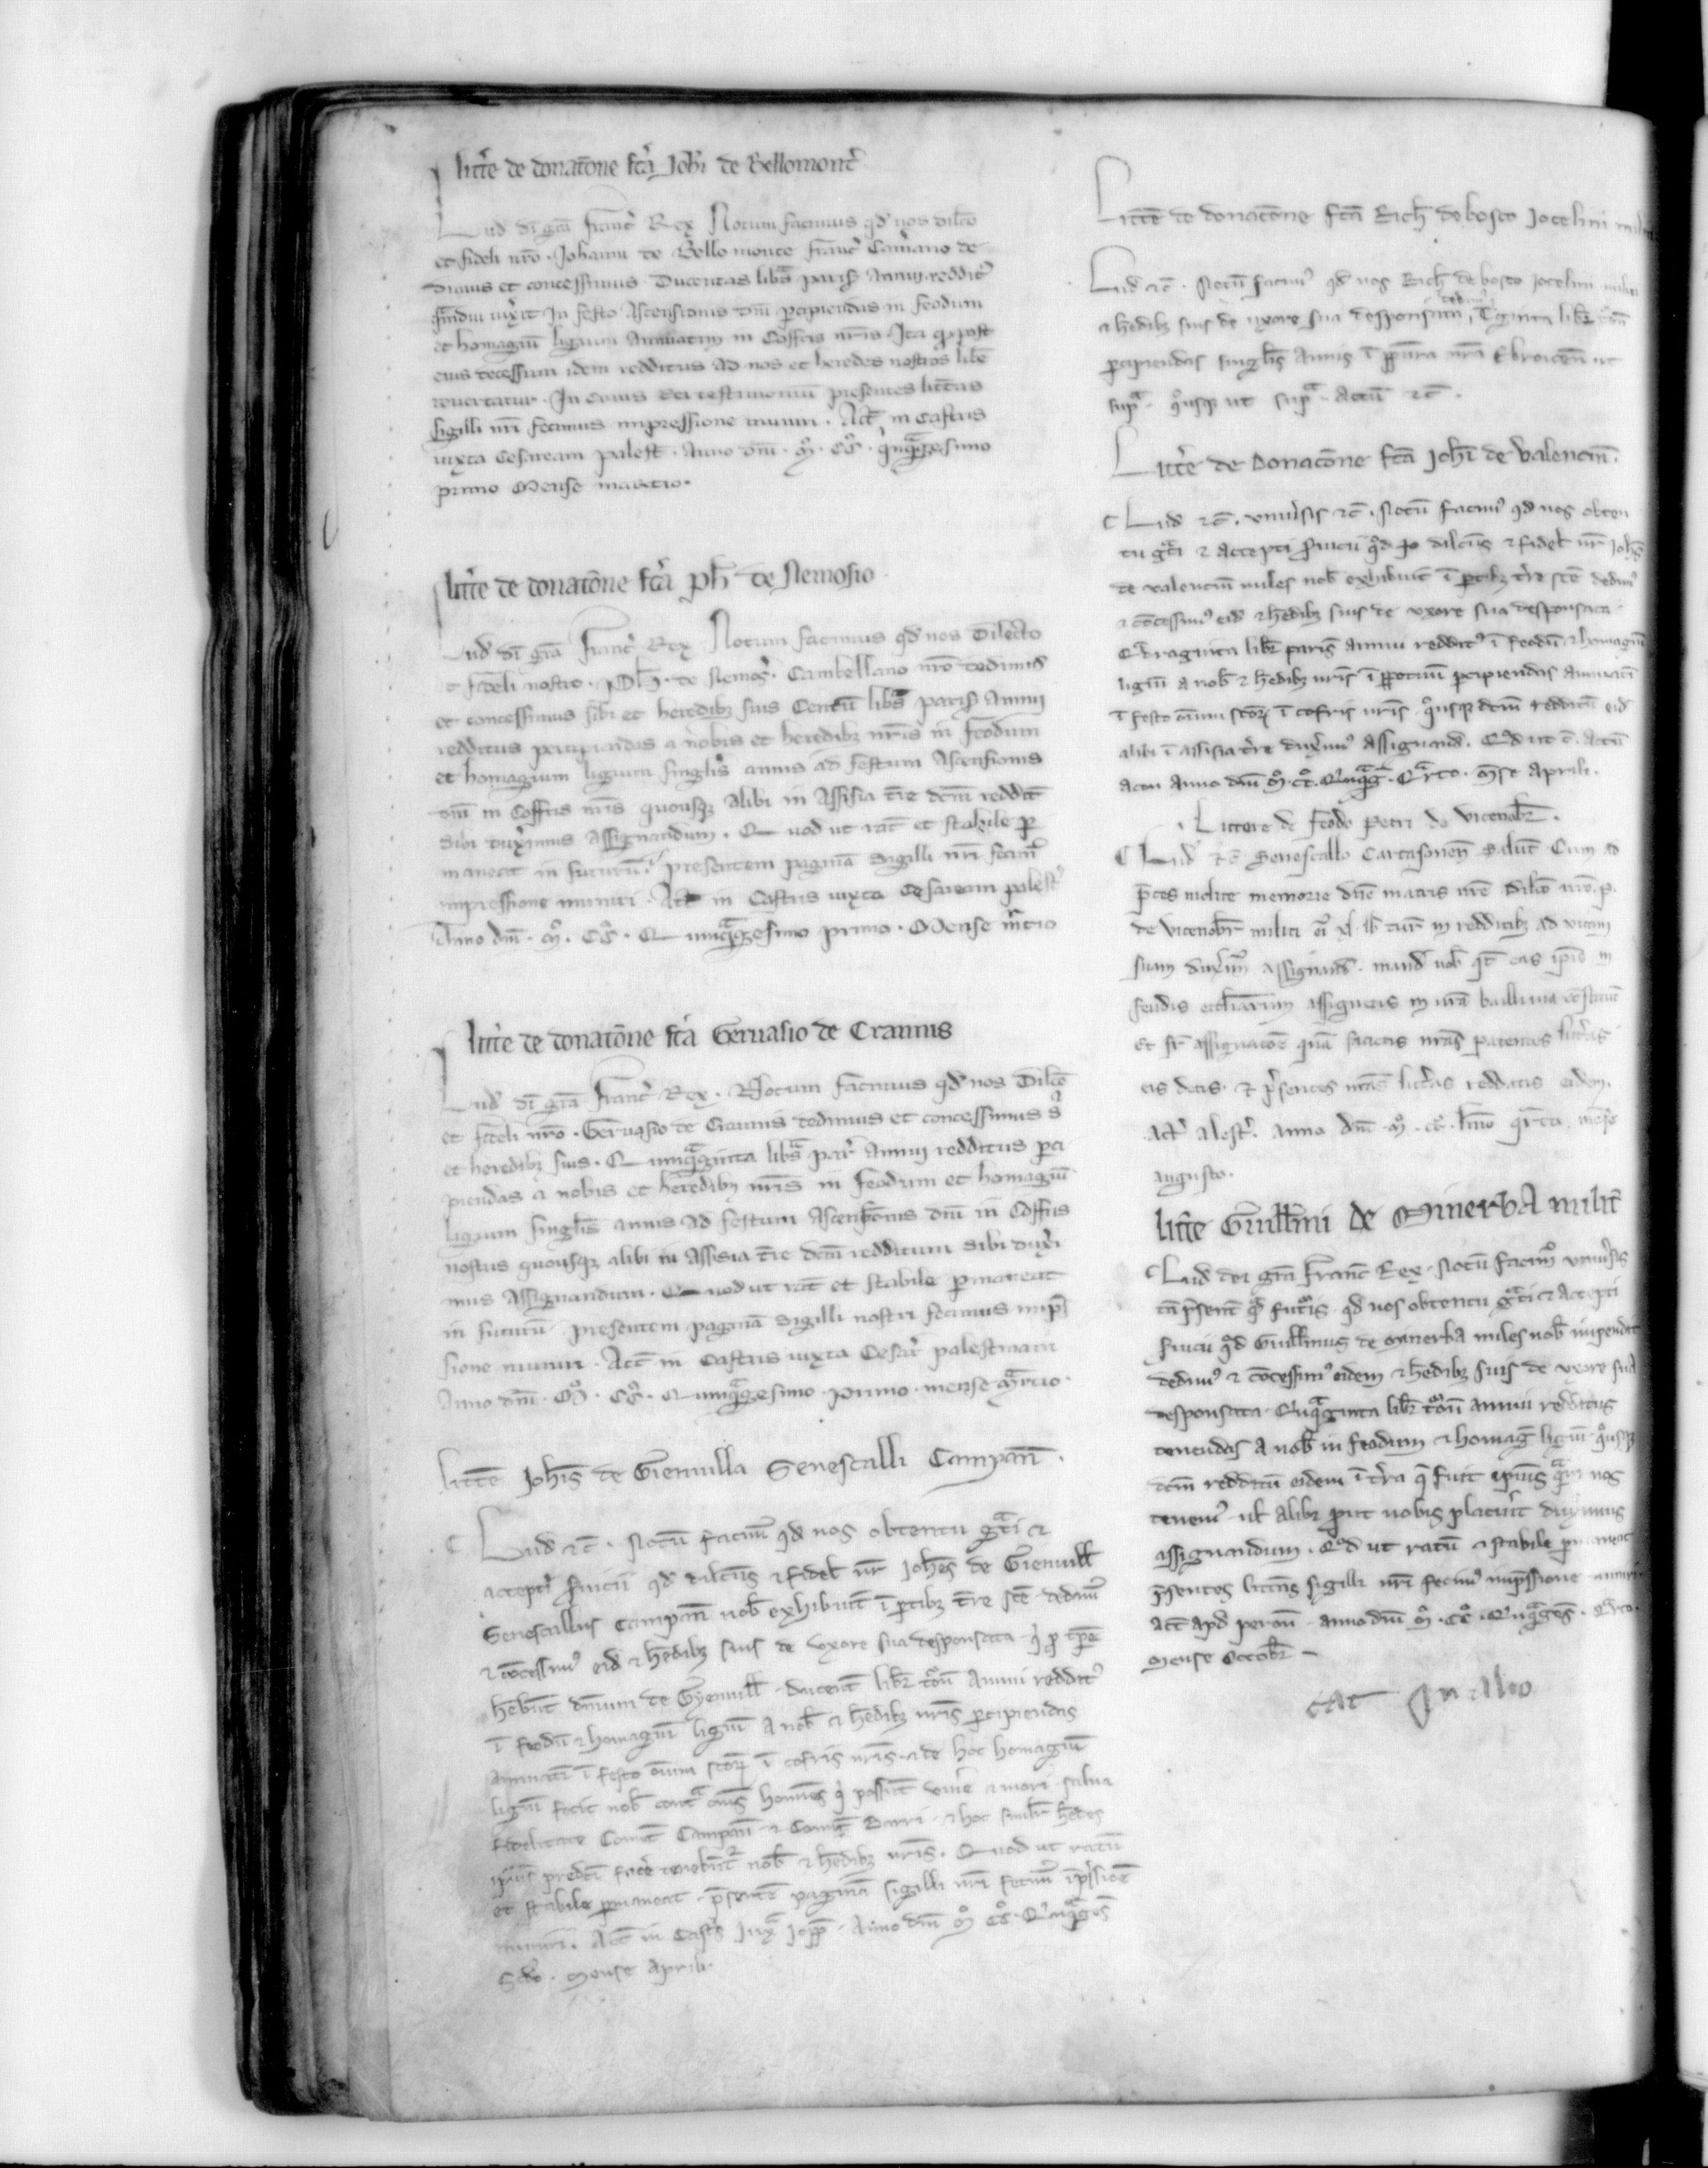 Litt'e de donatōne fcā Joh'i de Bellomont'
Lud' dī grā Franc' Rex Notum facimus qd' nos dilc̄o
et fideli nr̄o. Johanni de Bello monte Franc' Cam'ario de
dimus et concessimus Ducentas libr̄ paris' Annui reddit'
q̄mdiu vix'it In festo Ascensionis dn̄i percipiendas in feodum
et homagiū ligium Annuatim in Coffris nr̄is. Ita q' post
eius decessum idem redditus ad nos et heredes nostros lib'e
revertatur. In Cuius rei testimoniū presentes litt'as
sigilli nr̄i fecimus impressione muniri. Act' in Castris
iuxta Cesaream palest'. Anno dn̄i. M°. CC°. q'nq̄gesimo
primo Mense martio.
Litt'e de donatōne fcā ph' de Nemosio
Lud' dī grā Franc' Rex Notum facimus qd' nos Dilecto
et fideli nostro. Ph'. de Nemos'. Cambellano nr̄o dedimus
et concessimus sibi et heredibz suis Centū libr̄ paris' Annui
redditus percipiendas a nobis et heredibz nr̄is in feodum
et homagium ligium singlis annis ad festum Ascensionis
dn̄i in Coffris nr̄is quousqz alibi in Assisia t're dc̄m reddit'
sibi dux'imus Assignandum. Quod ut rat' et stabile p
maneat in futurū. presentem paginā sigilli nr̄i fecim'
impressione muniri. Act' in Castris iuxta Cesaream palest'
Anno dn̄i. M°. CC°. Quinq̄gesimo primo. Mense m'cio
Litt'e de donatōne fcā Gervasio de Crannis
Lud' dī grā Franc' Rex. Notum facimus qd' nos Dilc̄o
et fideli nr̄o. Gervasio de Crannis dedimus et concessimus s'
et heredibz suis. Quinq̄ginta libr̄ par' Annui redditus perci
piendas a nobis et heredibz nr̄is in feodum et homagiū
ligium singlis annis ad festum Ascensionis dn̄i in Coffris
nostris quousqz alibi in Assisia t're dc̄m redditum sibi dux'i
mus Assignandum. Quod ut rat' et stabile permaneat
in futurū presentem paginā sigilli nostri fecimus imp̄s
sione muniri. Act' in Castris iuxta Cesar' palestinam
Anno dn̄i. M°. CC°. Quinq̄gesimo primo. mense m̄rcio.
Litte' Joh'is de Gienvilla Senescalli Campan'.
Lud' &c'. Notū facim' qd nos obtentu gāti &
accepti s'vicii qd dilc̄us & fidel' nr' Joh'es de Gienvill'
Senescallus Campan' nob' exhibuit ī p̄tibz t're sc̄e dedim'
& cōcessim' eid' & h'edibz suis de uxore sua desponsata q' p tp̄e
heb'unt dnium de Gyenvill' ducent' libr' t'on' Annui reddit'
ī feodū & homagiū ligiū A nob' & h'edibz nr̄is percipiendas
Annuati' ī festo om̄iu sc̄or' ī cofris nr̄is & de hoc homagiū
ligiū fecit nob' cont̄a om̄s homines q' possit vive' & mori salva
fidelitate Comit' Campan' & Comit' Barri & hoc simil'r h'edes
ipius predc̄i face' tenebunt' nob' & h'edibz nr̄is. Quod ut ratū
et stabile p̄maneat p'sente' paginā sigilli nr̄i fecim' īp'ssione
muniri. Act' in Castr' Jux̄ Jopp'. Anno dn̄i M° CC°. Quiq̄ges'
Scd'o. Mense Aprili.
Litte' de donatōne fcā Rich' de bosco Jocelini
Lud' &c'. Notū facim' qd nos Rich' de bosco Jocelini militi
& h'edibz suis de uxore sua desponsata dedim' T'ginta libr' t'on'
percipiendas singlis Annis ī nr̄a Ebroicen' ut
sup̄. q'usqz ut sup̄. Actū &c'.
Litt'e de Donatōne fcā Joh'i de Valencin'.
Lud' &c'. univ'sis &c'. Notū facim' qd nos obten
tu gāti & accepti s'vicii qd dilc̄us & fidel' nr' Joh's
de valencin' miles nob' exhibuit ī p̄tibz t're sc̄e dedim'
& cōcessim' eid' & h'edibz suis de uxore sua desponsata
Q̄draginta libr' paris' annui reddit' ī feodū & homagiū
ligiū a nob' & h'edibz nr̄is ī p̄petuū percipiendas Annuati'
ī festo om̄iu sc̄or' ī cofris nr̄is q'usqz dc̄m redditū eid'
alibi ī assisia t're dux'im' assignand'. Qd ut &c'. Actū
Acon Anno dn̄i M° CC° Quiq̄g' Q̄rto. m̄se Aprili.
Littere de feodo Petri de Vicenobr'.
Lud' &c' Senescallo Carcasonen' Salut'. Cum ad
p'ces inclite memorie dn̄e matris nr̄e Dilc̄o nr̄o. p.
de vicenobr' militi xl. lb' tur' in redditibz ad vitam
suam dux'im' assignand'. mand' vob' qt' eas ipi' in
feudis assignetis in vr̄a ballivia
Et sr' assignatōe quā facietis vr̄as patentes litt'as
eis detis. & p'sentes nr̄as litt'as reddatis eidem.
Act' alest'. Anno dn̄i. M°. CC°. lmo q̄rto. mēse
augusto.
Litt'e Guill'mi de Minerba milit'
Lud' dei grā Franc' Rex. Notū facim' univ'sis
tā p'sent' q̄ fut'is qd nos obtentu gāti & accepti
s'vicii qd Guill'mus de Minerba miles nob' inpendit
dedim' & cōcessim' eidem & h'edibz suis de uxore sua
desponsata Quiq̄ginta libr' t'on' annui redditus
tenendas A nob' in feodum & homag' ligiū q'usqz
dc̄m redditū eidem ī t'ra q̄ fuit ipius q̄m nos
tenem' ul' alibi put nobis placu'it dux'imus
assignandum. Qd ut ratū & stabile p̄maneat
p'sentes litt'as sigilli nr̄i fecim' imp'ssione muniri.
Act' apd peron' anno dn̄i M°. CC°. Quiq̄ges'. Q̄rto.
Mense Octobr'
In alio